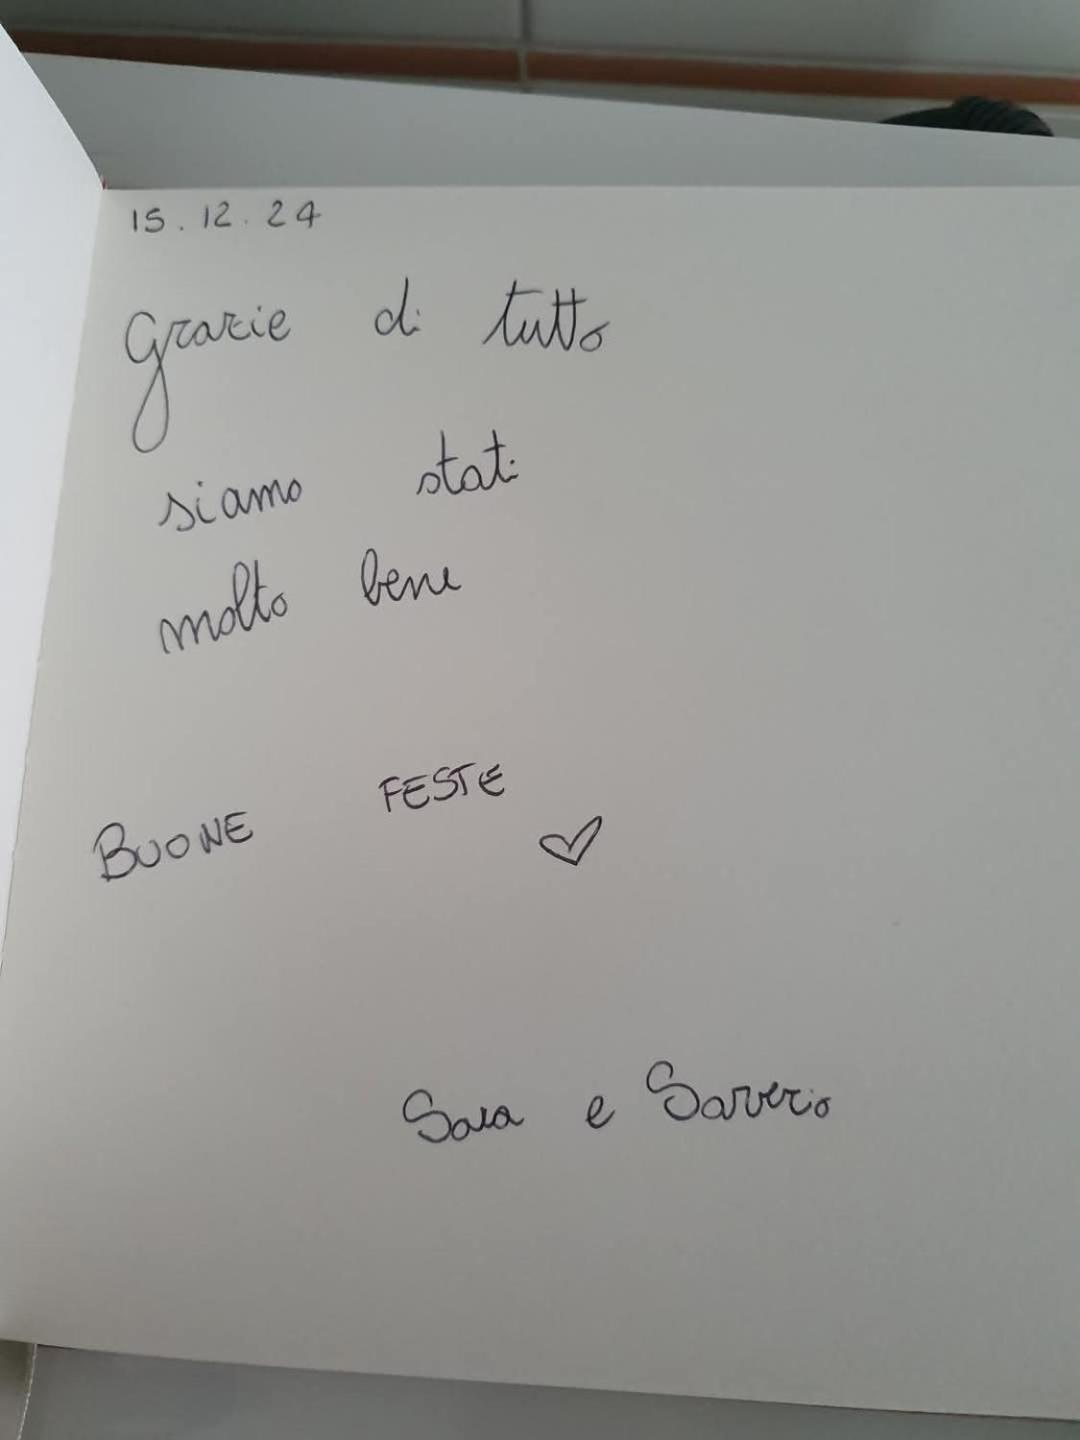 15.12.24
Grazie di tutto
siamo stati
molto bene
BUONE FESTE
Sara e Saverio